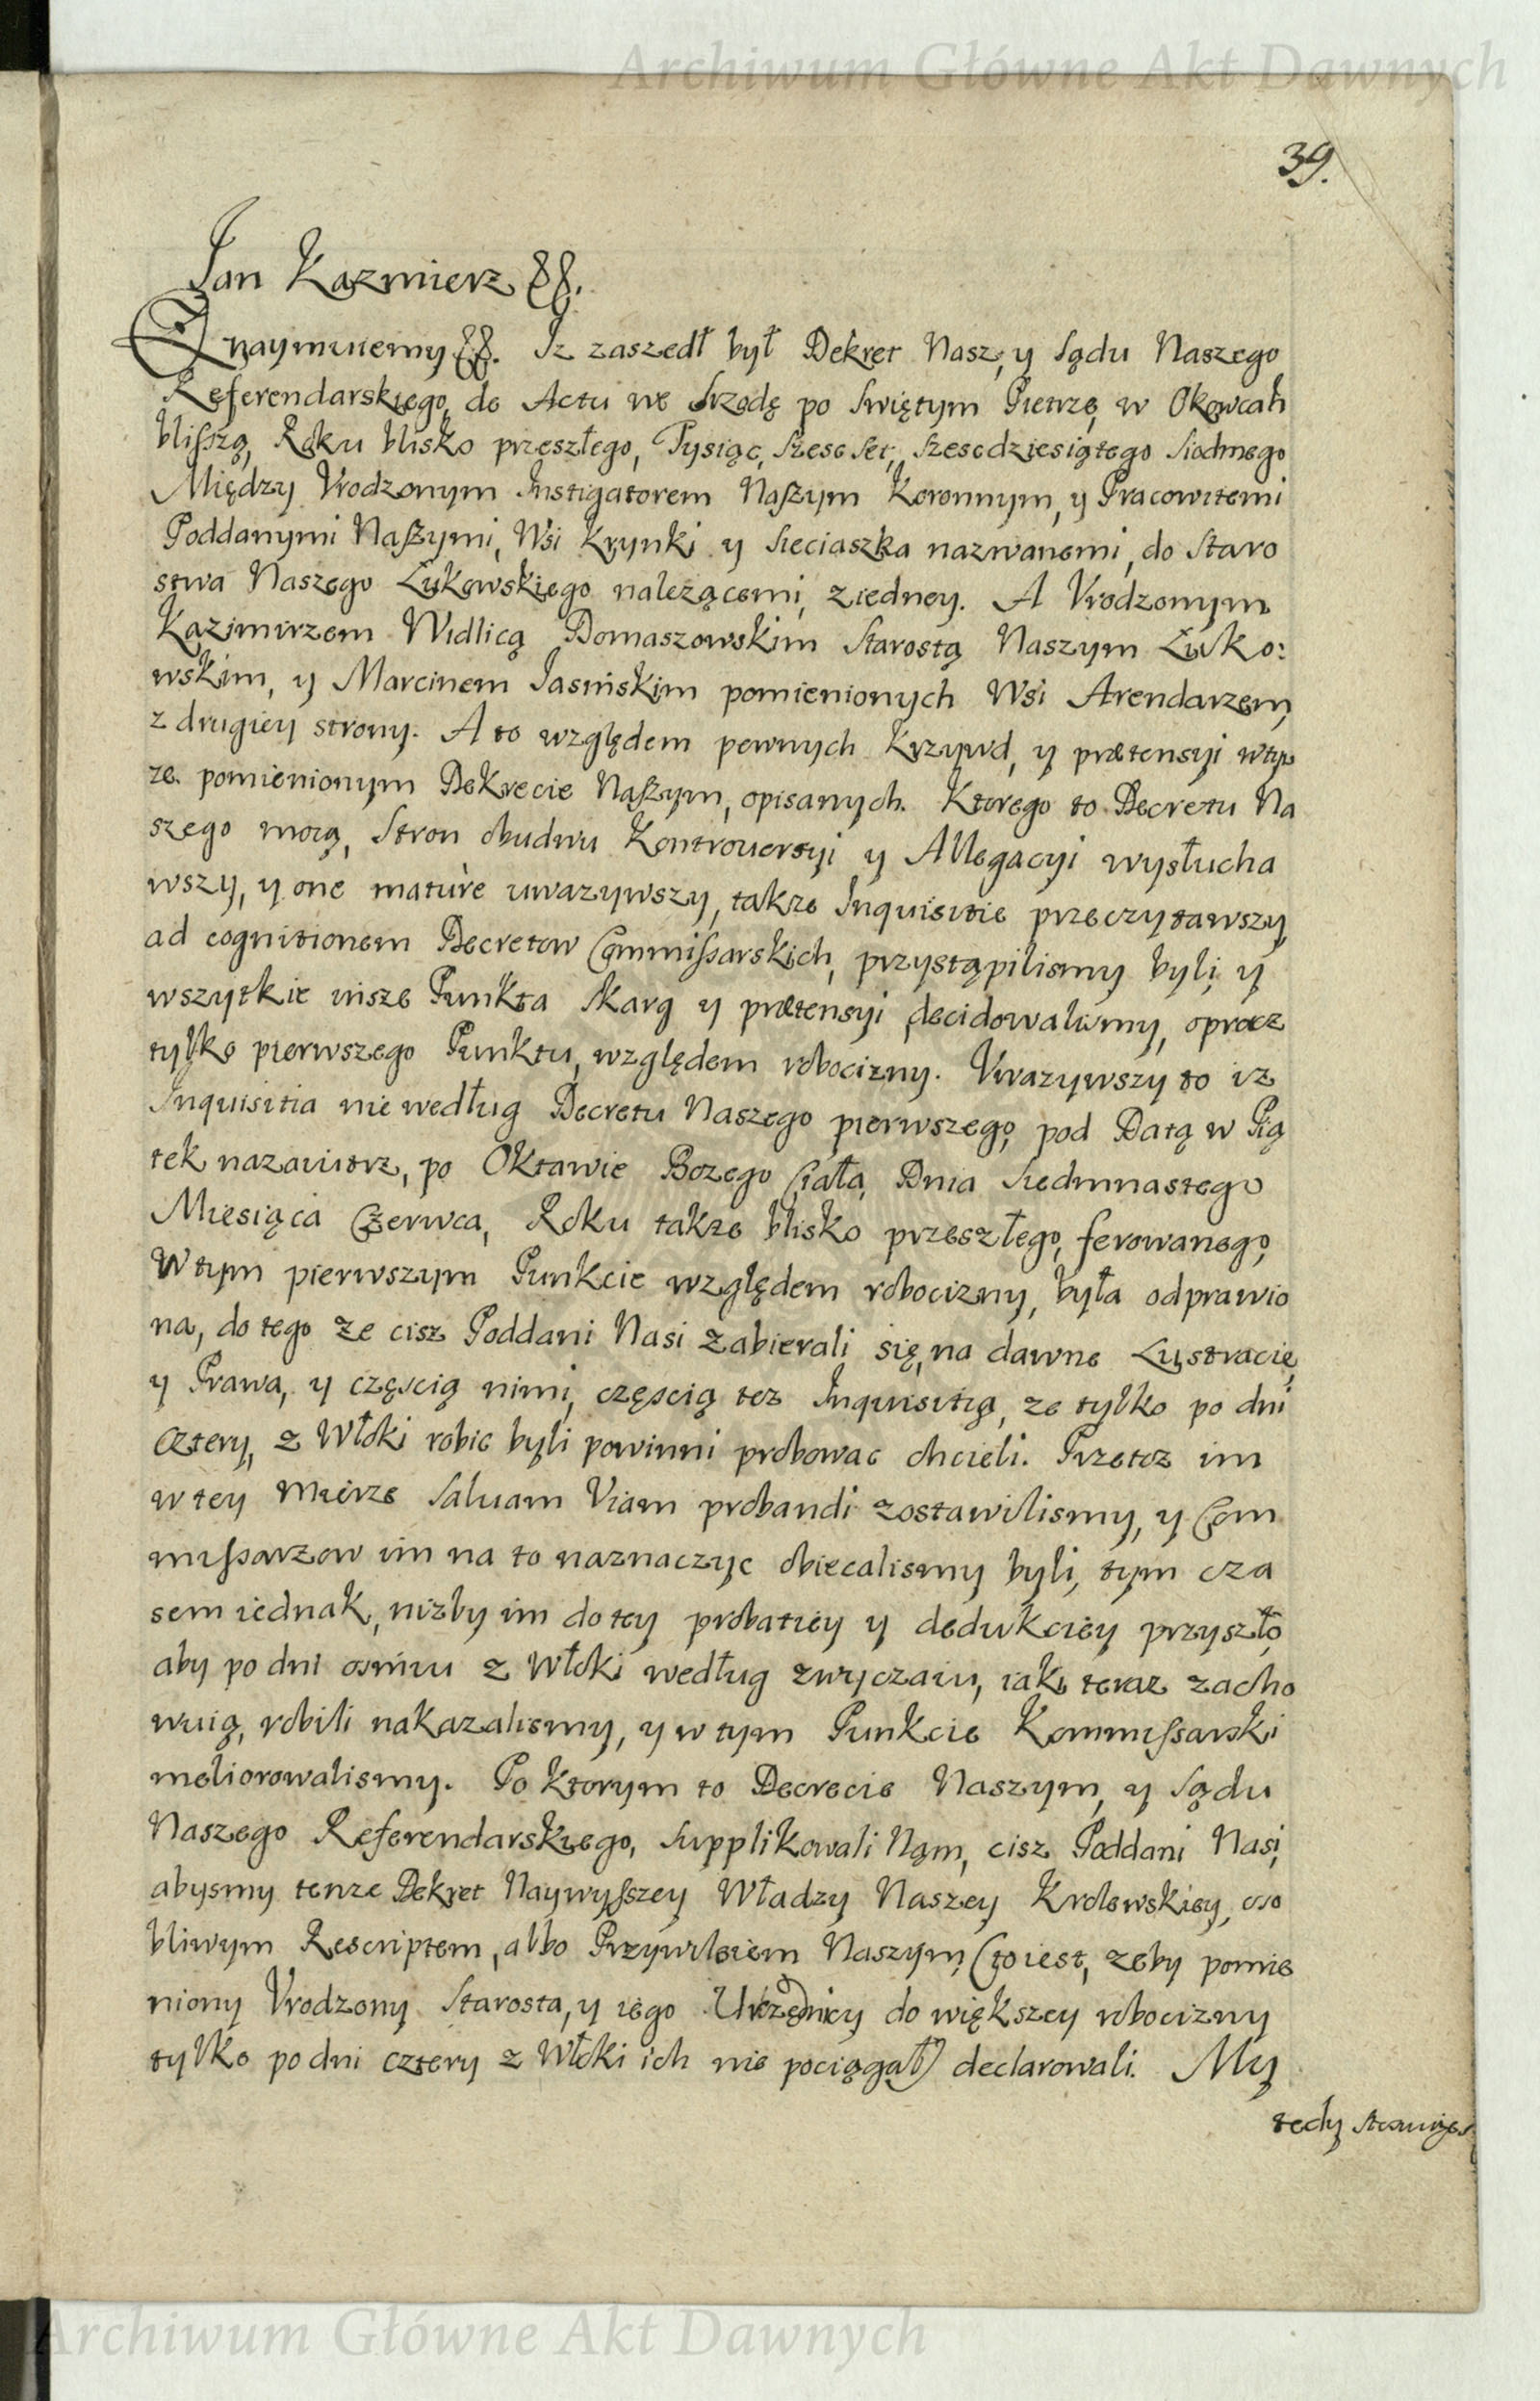 Archiwum Główne Akt Dawnych
39.
Jan Kazmierz &&.
Oznaymuiemy &&. Iz zaszedł był Dekret Nasz, y Sądu Naszego
Referendarskiego, de Actu we Srzodę po Swiętym Pietrze, w Okowcah
bliſszą, Roku blisko przeszłego, Tysiąc, Szesc Set, Szescdziesiątego Siodmego
Między Vrodzonym Instigatorem Naſzym Koronnym, y Pracowitemi
Poddanymi Naſzymi, Wsi Krynki y Sieciaszka nazwanemi, do Staro
stwa Naszego Łukowskiego należącemi, ziedney. A Vrodzonym
Kazimirzem Widlicą Domaszowskim Starostą Naszym Łuko:
wskim, y Marcinem Jasińskim pomienionych Wsi Arendarzem,
z drugiey strony. A to względem pewnych Krzywd, y prætensyi wtym
ze pomienionym Dekrecie Naſzym, opisanych. Ktorego to Decretu Na
szego mocą, Stron obudwu Kontrouersyi y Allegacyi wysłucha
wszy, y one maturè uwazywszy, takze Inquisitie przeczytawszy
ad cognitionem Decretow Commiſsarskich, przystąpilismy byli, y
wszytkie insze Punkta Skarg y prætensyi decidowalismy, oprocz
tylko pierwszego Punktu, względem robocizny. Vwazywszy to iz
Inquisitia nie według Decretu Naszego pierwszego, pod Datą w Pią
tek nazaiutrz, po Oktawie Bozego Ciała, Dnia Siedmnastego
Miesiąca Czerwca, Roku takze blisko przeszłego, ferowanego,
W tym pierwszym Punkcie względem robocizny, była odprawio
na, do tego ze cisz Poddani Nasi zabierali się, na dawne Lustracie,
y Prawa, y częscią nimi, częscią tez Inquisitią, ze tylko po dni
cztery, z Włoki robic byli powinni probowac chcieli. Przetoz im
w tey mierze Saluam Viam probandi zostawilismy, y Com
miſsarzow im na to naznaczyc obiecalismy byli, tym cza
sem iednak, nizby im do tey probatiey y dedukciey przyszło,
aby po dni osmiu z Włoki według zwyczaiu, iako teraz zacho
wuią, robili nakazalismy, y w tym Punkcie Kommiſsarski
meliorowalismy. Po ktorym to Decrecie Naszym, y Sądu
Naszego Referendarskiego, Supplikowali Nam, cisz Poddani Nasi,
abysmy tenze Dekret Naywyſszey Władzy Naszey Krolewskiey, oso
bliwym Rescriptem, albo Przywileiem Naszym, (to iest, zeby pomie
niony Vrodzony Starosta, y iego Urzędnicy do większey robocizny
tylko po dni cztery z Włoki ich nie pociągał) declarowali. My
tedy
Archiwum Główne Akt Dawnych